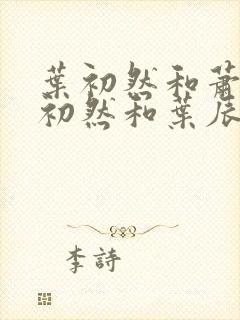 葉初然和蕭
初然和葉辰
李詩